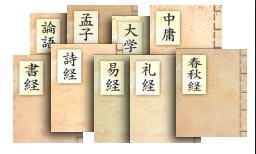 論語
孟子
大学
中庸
書経
詩経
易経
礼経
春秋経